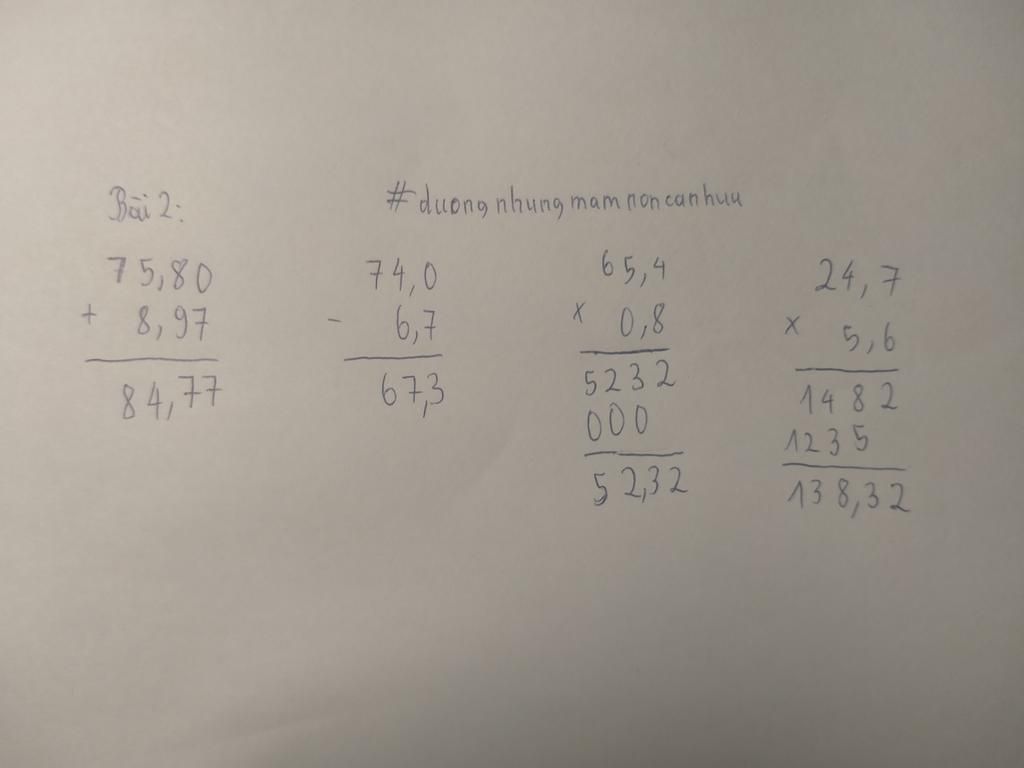 Bài 2: #duongnhungmamnoncanhuu
75,80
+ 8,97
84,77
74,0
- 6,7
67,3
65,4
x 0,8
5232
000
52,32
24,7
x 5,6
1482
1235
138,32